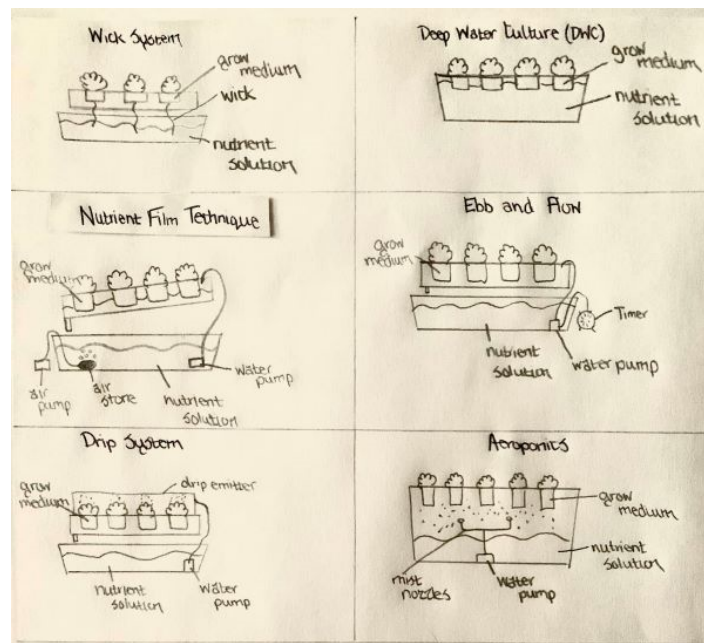 Wick System
grow
medium
wick
nutrient
solution
Deep Water Culture (DWC)
grow
medium
nutrient
solution
Nutrient Film Technique
grow
medium
air
pump
air
stone
nutrient
solution
water
pump
Ebb and Flow
grow
medium
Timer
nutrient
solution
water pump
Drip System
drip emitter
grow
medium
nutrient
solution
water
pump
Aeroponics
grow
medium
nutrient
solution
mist
nozzles
water
pump